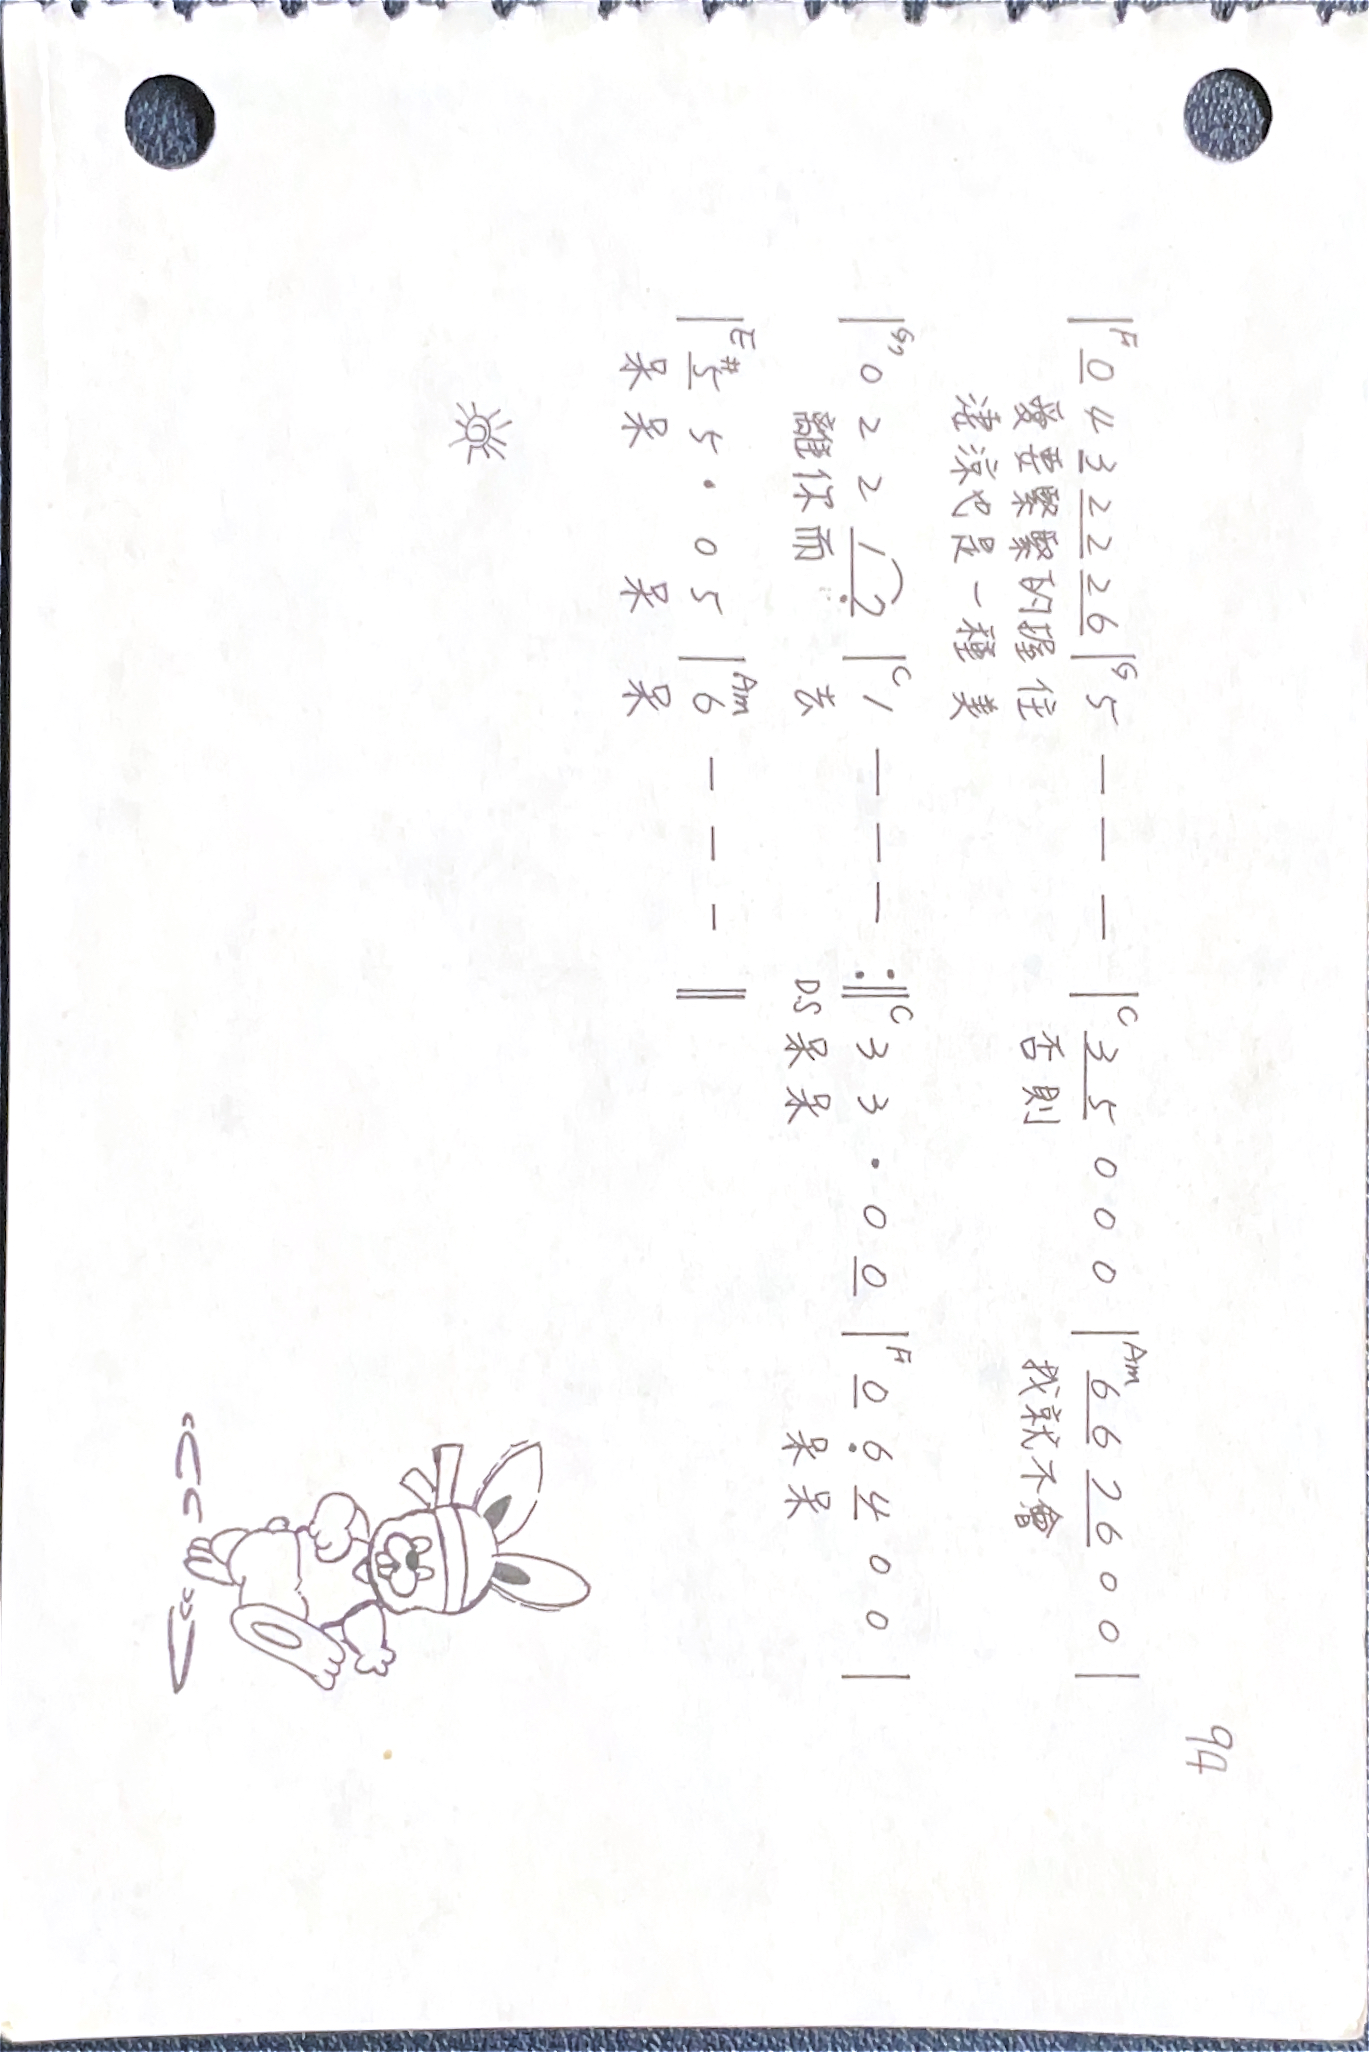 94
|F 0 4 3 2 2 2 6 |G 5 — — — |C 3 5 0 0 0 |Am 6 6 7 6 0 0 |
愛要緊緊的握住 否則 我就不會
淒涼也是一種美
|G7 0 2 2 1 7 |C 1 — — — :||C 3 3 · 0 0 |F 0 6 4 0 0 |
離你而 去 D.S 呆呆 呆呆
|E #5 5 · 0 5 |Am 6 — — — ||
呆呆 呆 呆